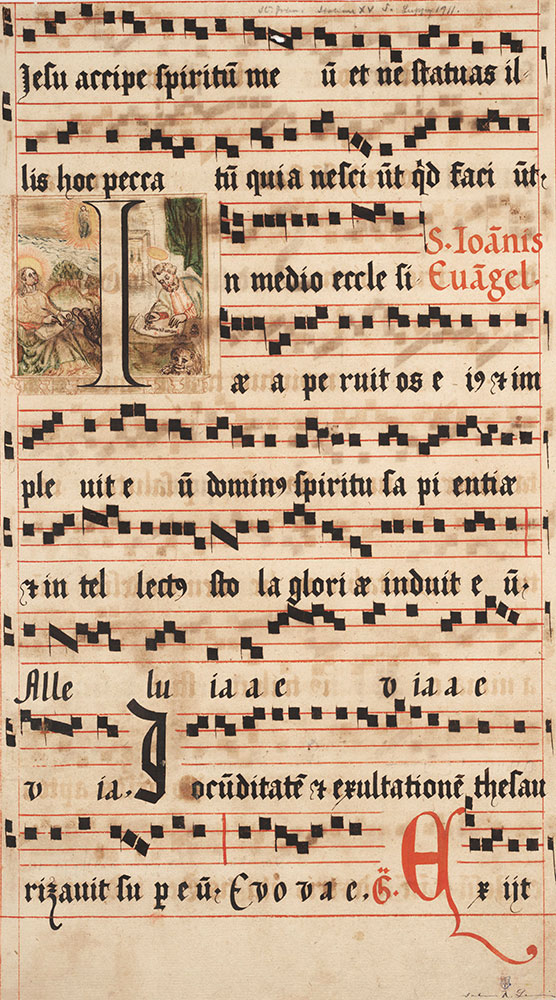 Jesu accipe spiritū me ū et ne statuas il-
lis hoc pecca tū quia nesci ūt qd faci ūt.
S. Ioānis
In medio eccle si
Euāgel.
æ a pe ruit os e i9 ⁊ im
ple uit e ū domin9 spiritu sa pi entiæ
⁊ in tel lect9 sto la glori æ induit e ū.
Alle lu ia a e v ia a e
v ia. Jocūditatē ⁊ exultationē thesau
rizavit su p e ū. Evovae. G. Exijt